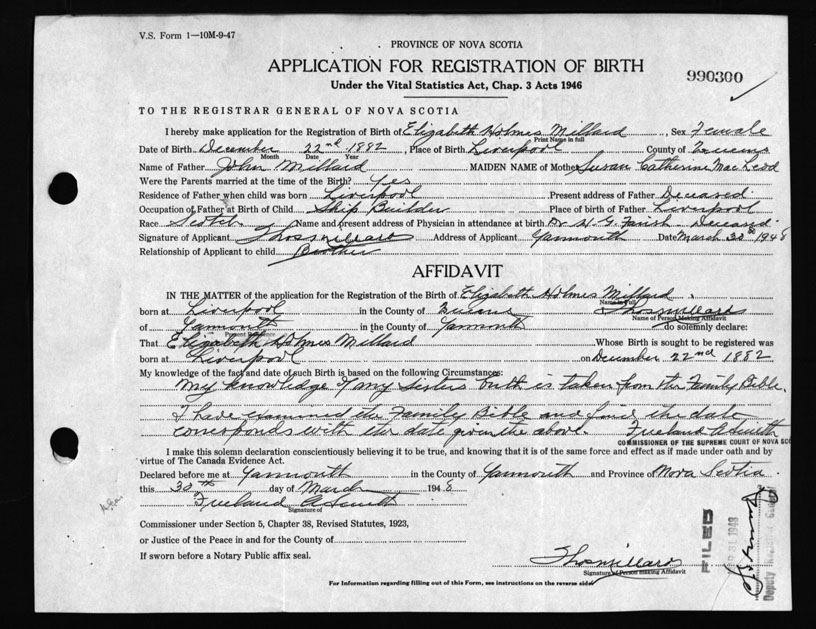 V.S. Form 1—10M-9-47
PROVINCE OF NOVA SCOTIA
APPLICATION FOR REGISTRATION OF BIRTH
990300
Under the Vital Statistics Act, Chap. 3 Acts 1946
TO THE REGISTRAR GENERAL OF NOVA SCOTIA
I hereby make application for the Registration of Birth of Elizabeth Holmes Millard, Sex Female
Print Name in full
Date of Birth December 22nd 1882, Place of Birth Liverpool County of Queens
Month Date Year
Name of Father John Millard MAIDEN NAME of Mother Susan Catherine MacLeod
Were the Parents married at the time of Birth? Yes
Residence of Father when child was born Liverpool Present address of Father Deceased
Occupation of Father at Birth of Child Ship Builder Place of birth of Father Liverpool
Race Scotch Name and present address of Physician in attendance at birth Dr H. G. Farish Deceased
Signature of Applicant Thos Millard Address of Applicant Yarmouth Date March 30 1948
Relationship of Applicant to child Brother
AFFIDAVIT
IN THE MATTER of the application for the Registration of the Birth of Elizabeth Holmes Millard
Name in Full
born at Liverpool in the County of Queens Thos Millard
Name of Person Making Affidavit
of Yarmouth in the County of Yarmouth do solemnly declare:
Present Residence
That Elizabeth Holmes Millard Whose Birth is sought to be registered was
born at Liverpool on December 22nd 1882
My knowledge of the fact and date of such Birth is based on the following Circumstances:
My knowledge of my sisters birth is taken from the Family Bible.
I have examined the Family Bible and find the date
corresponds with the date given the above. Freeland A Smith
COMMISSIONER OF THE SUPREME COURT OF NOVA SCO
I make this solemn declaration conscientiously believing it to be true, and knowing that it is of the same force and effect as if made under oath and by
virtue of The Canada Evidence Act.
Declared before me at Yarmouth in the County of Yarmouth and Province of Nova Scotia
this 30th day of March 1948
Freeland A Smith
Signature of
Commissioner under Section 5, Chapter 38, Revised Statutes, 1923,
or Justice of the Peace in and for the County of
If sworn before a Notary Public affix seal.
Thos Millard
Signature of Person making Affidavit
For Information regarding filling out of this Form, see instructions on the reverse side.
FILED
31 1948
Deputy Registrar General